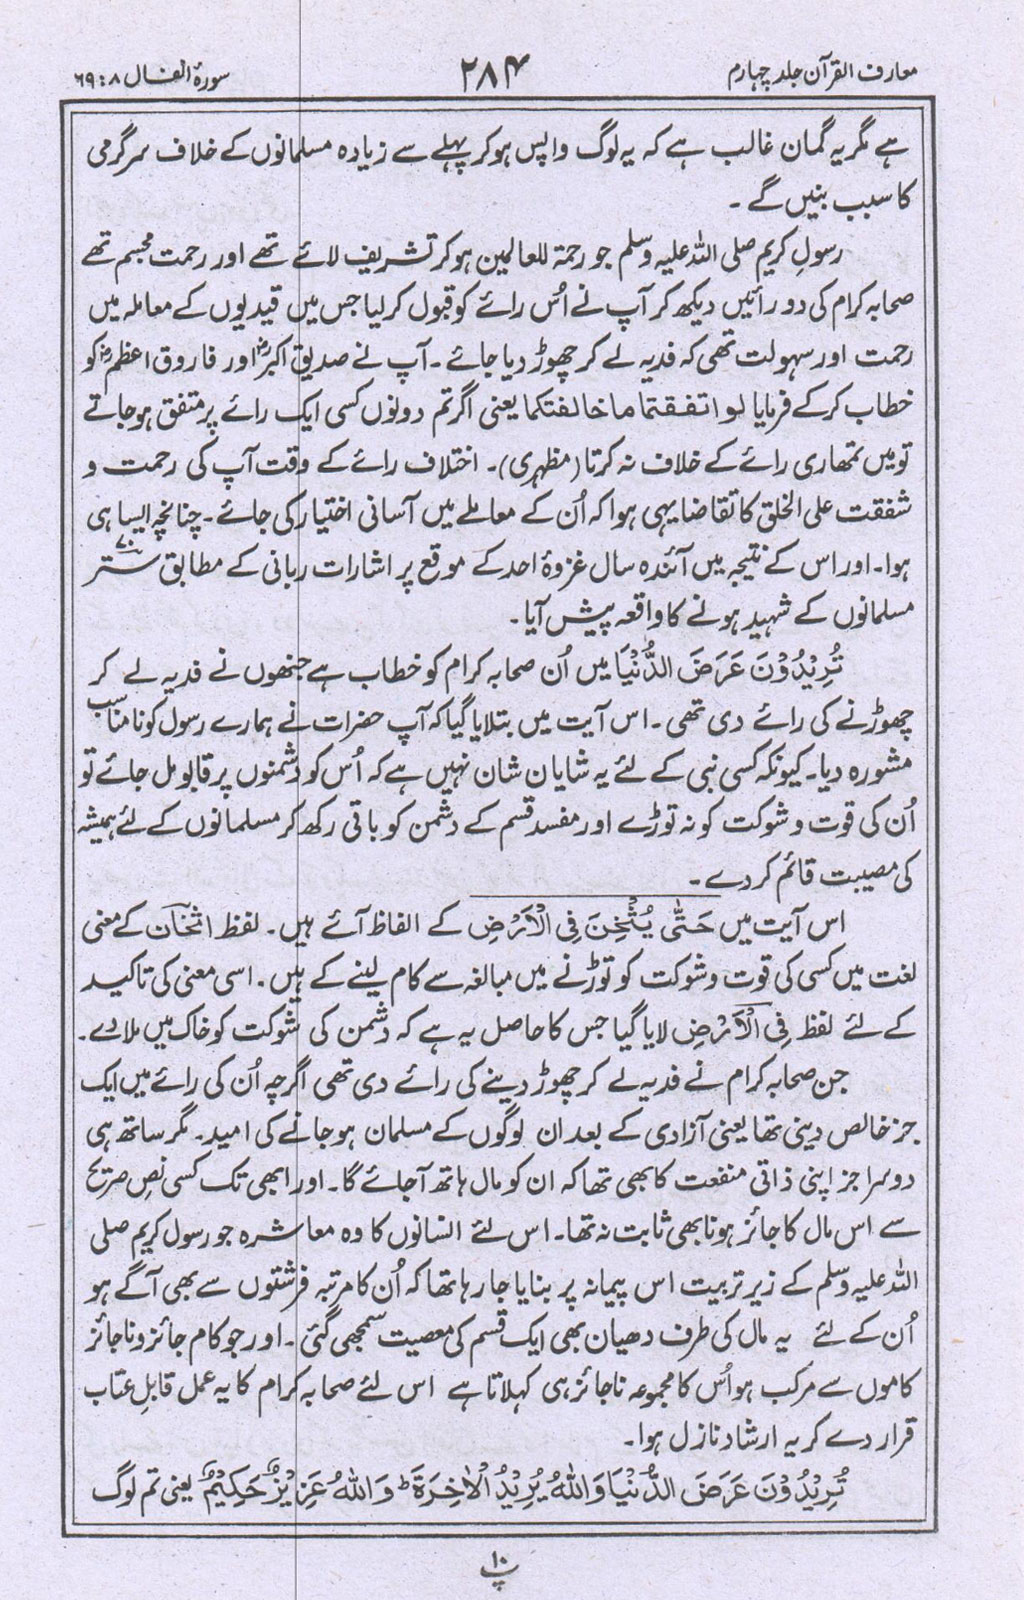 معارف القرآن جلد چہارم
۲۸۴
سورۂ انفال ۸ : ۶۹
ہے مگر یہ گمان غالب ہے کہ یہ لوگ واپس ہو کر پہلے سے زیادہ مسلمانوں کے خلاف سرگرمی
کا سبب بنیں گے ۔
رسولِ کریم صلی اللہ علیہ وسلم جو رحمۃ للعالمین ہو کر تشریف لائے تھے اور رحمت مجسم تھے
صحابہ کرام کی دو رائیں دیکھ کر آپ نے اُس رائے کو قبول کر لیا جس میں قیدیوں کے معاملہ میں
رحمت اور سہولت تھی کہ فدیہ لے کر چھوڑ دیا جائے ۔ آپ نے صدیق اکبرؓ اور فاروق اعظمؓ کو
خطاب کر کے فرمایا لو اتفقتما ما خالفتکما یعنی اگر تم دونوں کسی ایک رائے پر متفق ہو جاتے
تو میں تمھاری رائے کے خلاف نہ کرتا (مظہری)۔ اختلاف رائے کے وقت آپ کی رحمت و
شفقت علی الخلق کا تقاضا یہی ہوا کہ اُن کے معاملے میں آسانی اختیار کی جائے ۔ چنانچہ ایسا ہی
ہوا ۔ اور اس کے نتیجہ میں آئندہ سال غزوۂ احد کے موقع پر اشارات ربانی کے مطابق ستر ۷۰
مسلمانوں کے شہید ہونے کا واقعہ پیش آیا ۔
تُرِیْدُوْنَ عَرَضَ الدُّنْیَا میں اُن صحابہ کرام کو خطاب ہے جنھوں نے فدیہ لے کر
چھوڑنے کی رائے دی تھی ۔ اس آیت میں بتلایا گیا کہ آپ حضرات نے ہمارے رسول کو نامناسب
مشورہ دیا ۔ کیونکہ کسی نبی کے لئے یہ شایان شان نہیں ہے کہ اُس کو دشمنوں پر قابو مل جائے تو
اُن کی قوت و شوکت کو نہ توڑے اور مفسد قسم کے دشمن کو باقی رکھ کر مسلمانوں کے لئے ہمیشہ
کی مصیبت قائم کر دے ۔
اس آیت میں حَتّٰی یُثْخِنَ فِی الْاَرْضِ کے الفاظ آئے ہیں ۔ لفظ اثخان کے معنی
لغت میں کسی کی قوت و شوکت کو توڑنے میں مبالغہ سے کام لینے کے ہیں ۔ اسی معنی کی تاکید
کے لئے لفظ فِی الْاَرْضِ لایا گیا جس کا حاصل یہ ہے کہ دشمن کی شوکت کو خاک میں ملا دے ۔
جن صحابہ کرام نے فدیہ لے کر چھوڑ دینے کی رائے دی تھی اگرچہ اُن کی رائے میں ایک
جز خالص دینی تھا یعنی آزادی کے بعد ان لوگوں کے مسلمان ہو جانے کی امید ۔ مگر ساتھ ہی
دوسرا جز اپنی ذاتی منفعت کا بھی تھا کہ ان کو مال ہاتھ آجائے گا ۔ اور ابھی تک کسی نصِ صریح
سے اس مال کا جائز ہونا بھی ثابت نہ تھا ۔ اس لئے انسانوں کا وہ معاشرہ جو رسول کریم صلی
اللہ علیہ وسلم کے زیر تربیت اس پیمانہ پر بنایا جا رہا تھا کہ اُن کا مرتبہ فرشتوں سے بھی آگے ہو
اُن کے لئے یہ مال کی طرف دھیان بھی ایک قسم کی معصیت سمجھی گئی ۔ اور جو کام جائز و ناجائز
کاموں سے مرکب ہو اُس کا مجموعہ ناجائز ہی کہلاتا ہے اس لئے صحابہ کرام کا یہ عمل قابلِ عتاب
قرار دے کر یہ ارشاد نازل ہوا ۔
تُرِیْدُوْنَ عَرَضَ الدُّنْیَا وَاللّٰهُ یُرِیْدُ الْاٰخِرَةَ ؕ وَاللّٰهُ عَزِیْزٌ حَکِیْمٌ یعنی تم لوگ
پ ۱۰